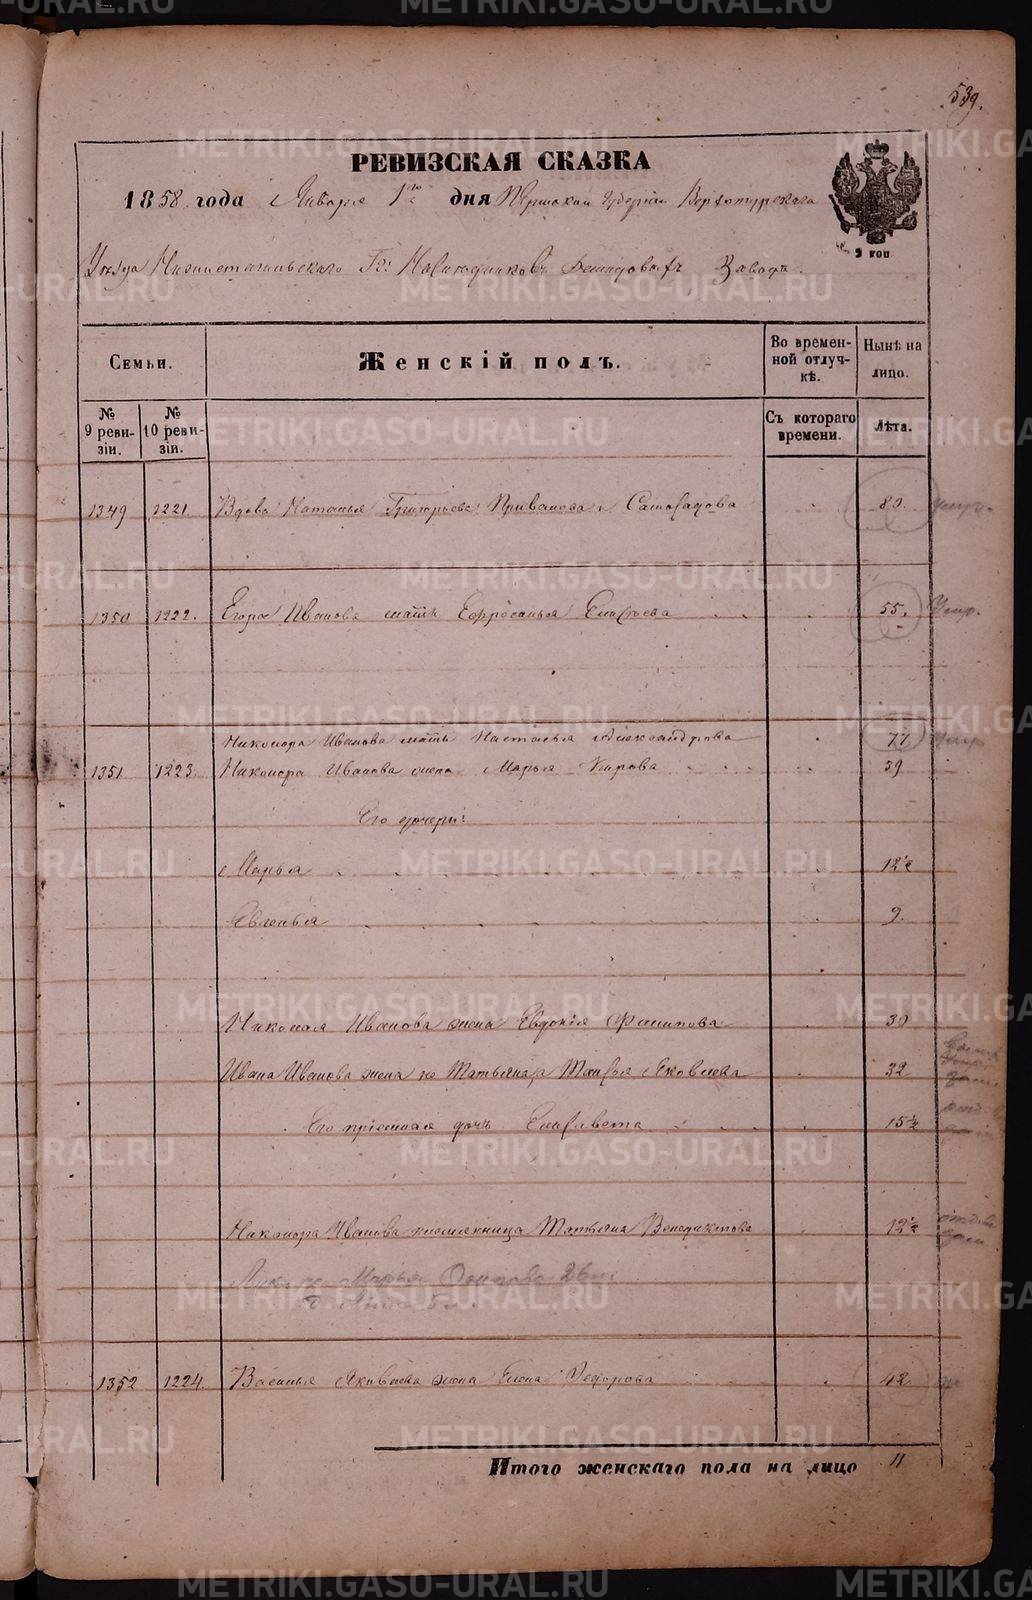 539.
РЕВИЗСКАЯ СКАЗКА
1858 года Января 1го дня Пермской Губернии Верхотурскаго
2 коп
Уезда Нижнетагильскаго Гг. Наследниковъ Демидовыхъ Завода.
Семьи.
Женскій полъ.
Во времен-
ной отлуч-
кѣ.
Нынѣ на
лицо.
№
9 реви-
зіи.
№
10 реви-
зіи.
Съ котораго
времени.
Лѣта.
1349 1221 Вдова Наталья Григорьева Самофалова 80. умр.
1350 1222. Егора Иванова мать Ефросинья Елисѣева 55. Умр.
Никонора Иванова мать Настасья Александрова 77 умр
1351 1223. Никонора Иванова жена Марья 39
Его дочери:
Марья 12½
Евгенья 9.
Николая Иванова жена Евдокія Филипова 30
Ивана Иванова жена не Татьяна, а Яковлева 32
Его пріемная дочь Елисавета 15½
Никонора Иванова племянница Татьяна Венедиктова 12½
Марья Осипова 26
1352 1224. Василья Яковлева жена Елена Федорова 42.
Итого женскаго пола на лицо 11
METRIKI.GASO-URAL.RU